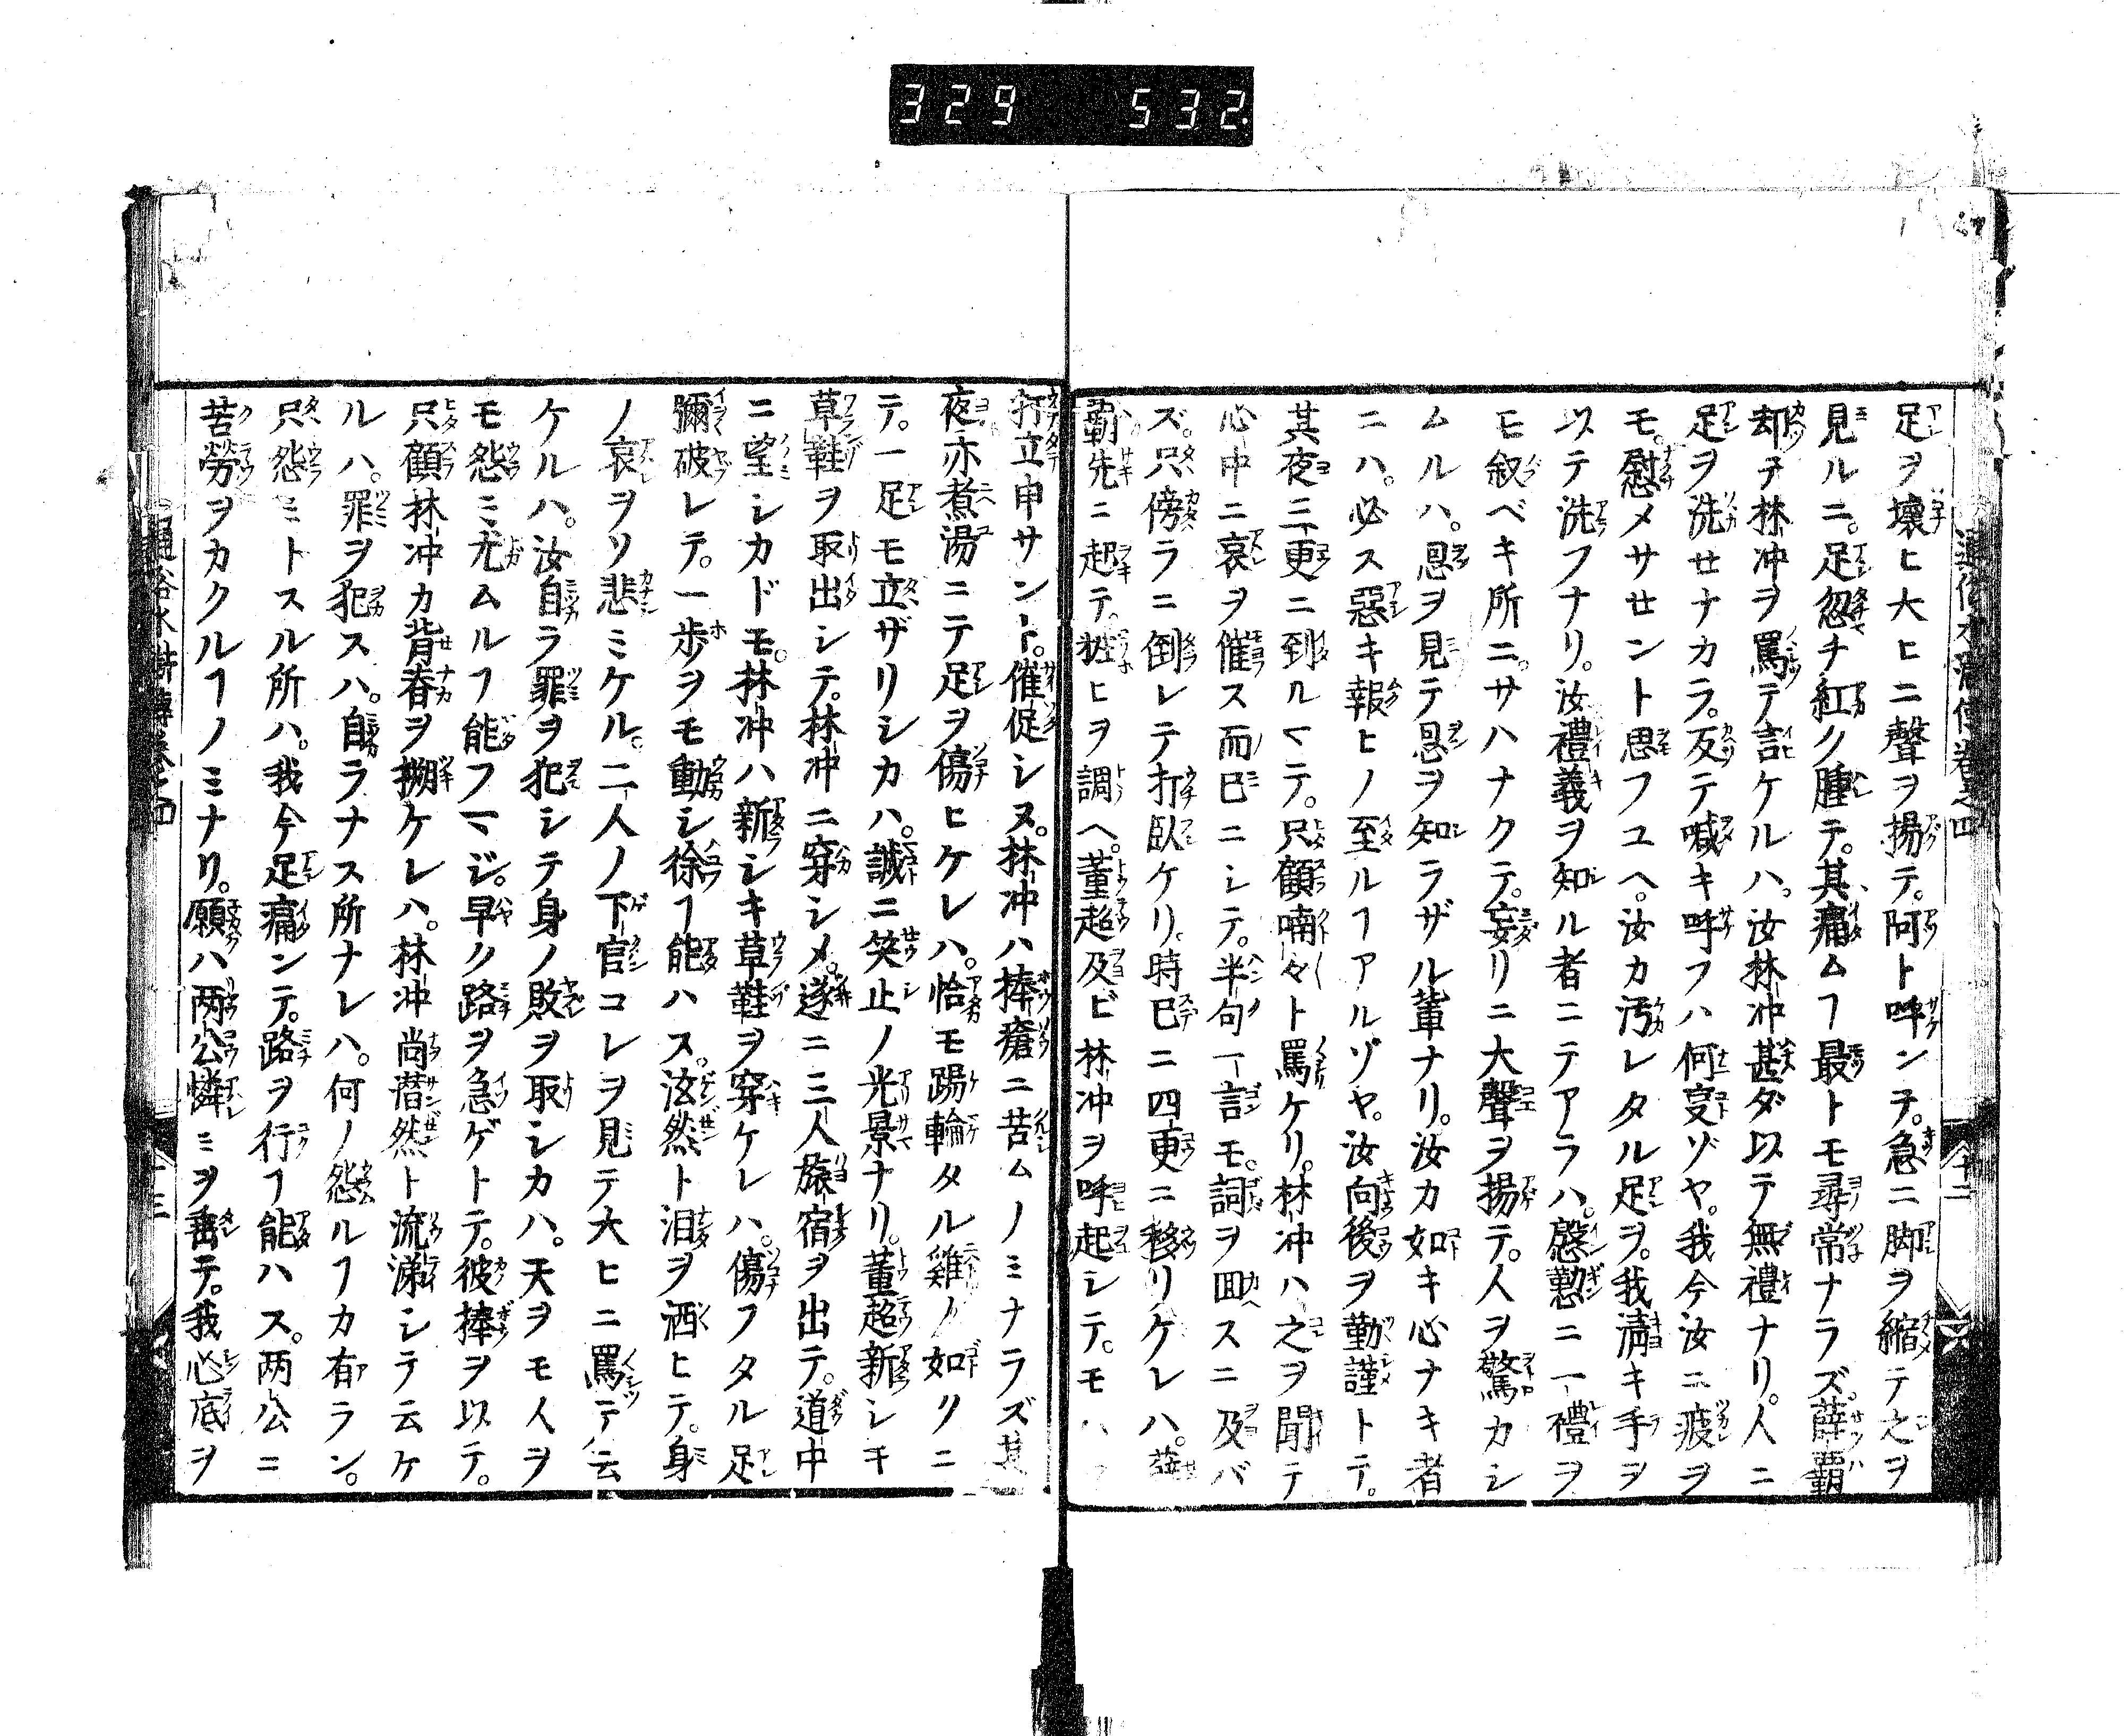 329 532.
足ヲ壞ヒ大ヒニ聲ヲ揚テ。阿ト呼ンテ。急ニ脚ヲ縮テ之ヲ
見ルニ。足忽チ紅ク腫テ。其痛ムヿ最トモ尋常ナラズ。薛覇
却テ林冲ヲ罵テ言ケルハ。汝林冲甚ダ以テ無禮ナリ。人ニ
足ヲ洗セナカラ。反テ喊キ呼フハ何㕝ゾヤ。我今汝ニ疲ヲ
モ。慰メサセント思フユヘ。汝カ汚レタル足ヲ。我清キ手ヲ
以テ洗フナリ。汝禮義ヲ知ル者ニテアラハ。慇懃ニ一禮ヲ
モ叙ベキ所ニ。サハナクテ。妄リニ大聲ヲ揚テ。人ヲ驚カシ
ムルハ。恩ヲ見テ恩ヲ知ラザル輩ナリ。汝カ如キ心ナキ者
ニハ。必ス惡キ報ヒノ至ルヿアルゾヤ。汝向後ヲ勤謹トテ。
其夜三更ニ到ルマテ。只顧喃々ト罵ケリ。林冲ハ之ヲ聞テ
心中ニ哀ヲ催ス而已ニシテ。半句一言モ。詞ヲ囬スニ及バ
ズ。只傍ラニ倒レテ打臥ケリ。時已ニ四更ニ移リケレハ。薛
覇先ニ起テ。粧ヒヲ調ヘ。董超及ビ林冲ヲ呼起シテ。モハ
打立申サント。催促シヌ。林冲ハ捧瘡ニ苦ムノミナラズ其
夜亦煮湯ニテ足ヲ傷ヒケレハ。恰モ踢輪タル雞ノ如クニ
テ。一足モ立ザリシカハ。誠ニ笑止ノ光景ナリ。董超新シキ
草鞋ヲ取出シテ。林冲ニ穿シメ。遂ニ三人旅宿ヲ出テ。道中
ニ望シカドモ。林冲ハ新シキ草鞋ヲ穿ケレハ。傷フタル足
彌破レテ。一歩ヲモ動シ徐ヿ能ハス。泫然ト泪ヲ洒ヒテ。身
ノ哀ヲソ悲ミケル。二人ノ下官コレヲ見テ大ヒニ罵テ云
ケルハ。汝自ラ罪ヲ犯シテ身ノ敗ヲ取シカハ。天ヲモ人ヲ
モ怨ミ尤ムルヿ能フマジ。早ク路ヲ急ゲトテ。彼捧ヲ以テ。
只顧林冲カ背脊ヲ搠ケレハ。林冲尚潜然ト流涕シテ云ケ
ルハ。罪ヲ犯スハ。自ラナス所ナレハ。何ノ怨ルヿカ有ラン。
只怨ミトスル所ハ。我今足痛ンテ。路ヲ行ヿ能ハス。两公ニ
苦勞ヲカクルヿノミナリ。願ハ两公憐ミヲ垂テ。我心底ヲ
通俗水滸傳卷之四 十三